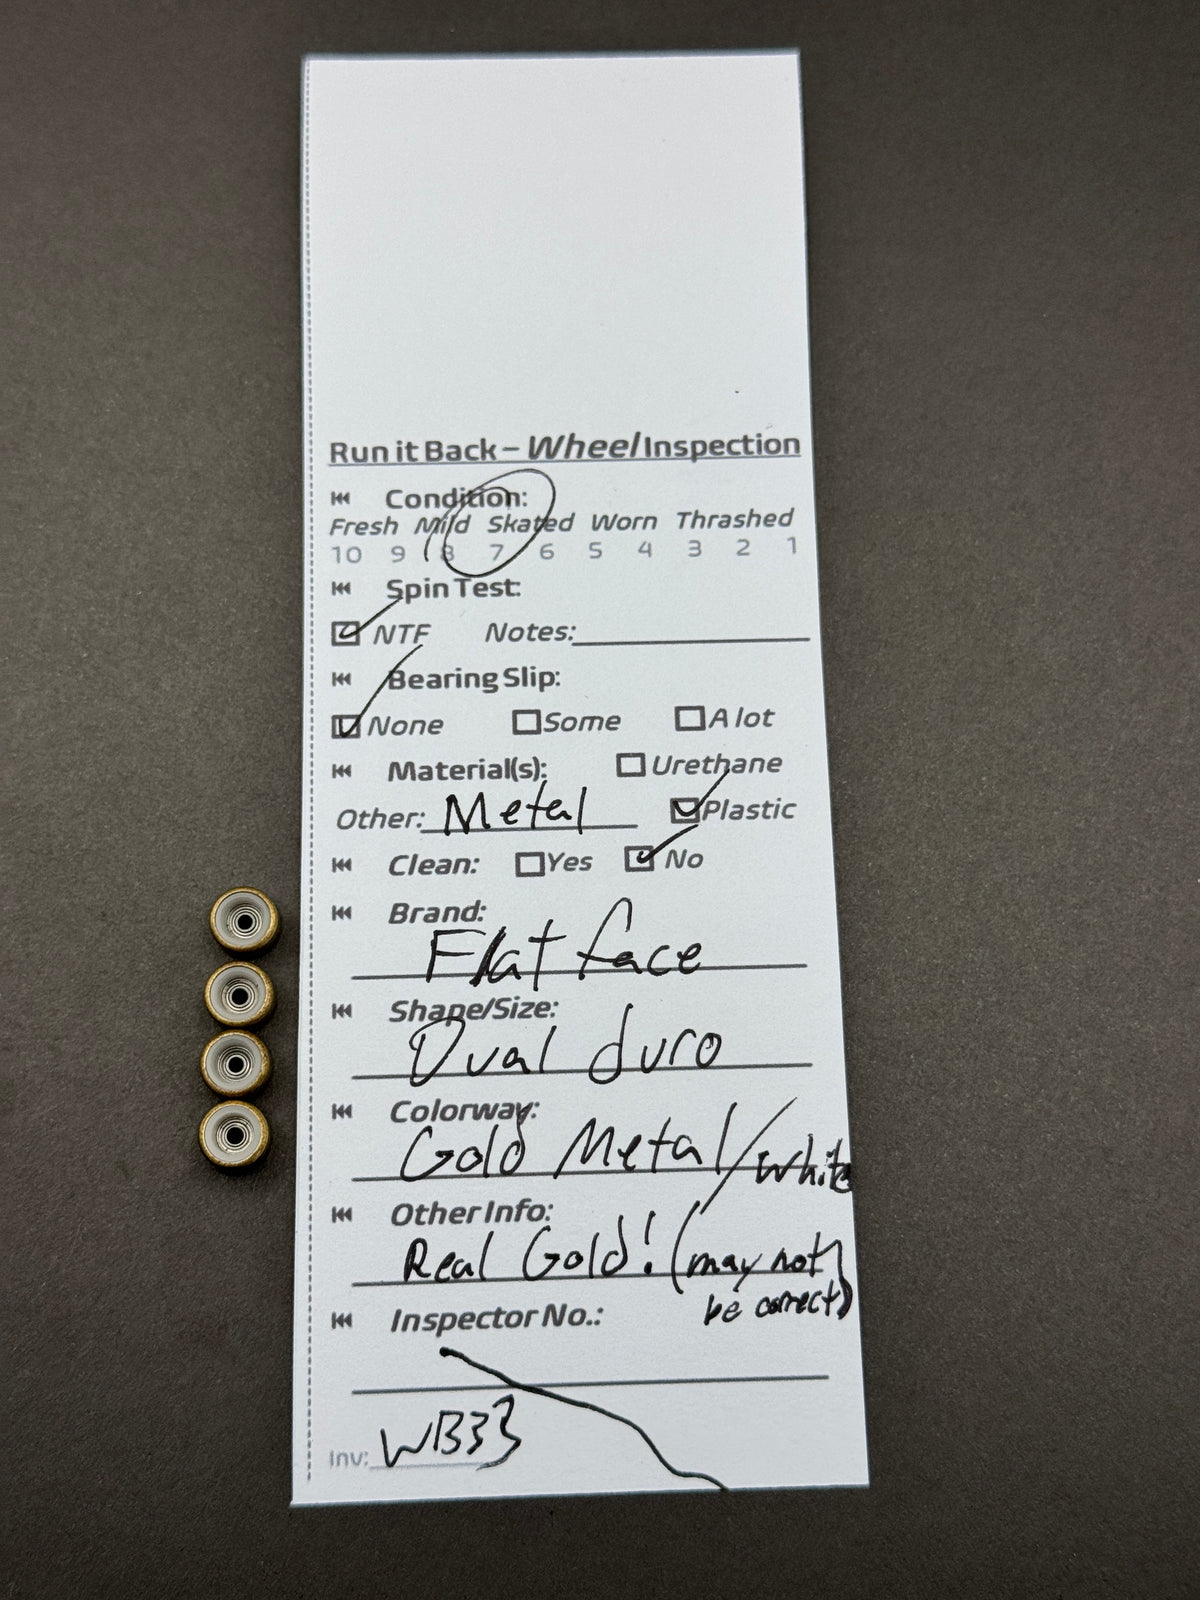 Run it Back – Wheel Inspection
Condition:
Fresh Mild Skated Worn Thrashed
10 9 8 7 6 5 4 3 2 1
Spin Test:
NTF Notes:
Bearing Slip:
None Some A lot
Material(s): Urethane
Other: Metal Plastic
Clean: Yes No
Brand:
Flatface
Shape/Size:
Dual duro
Colorway:
Gold Metal/White
Other Info:
Real Gold! (may not
be correct)
Inspector No.:
Inv: WB33